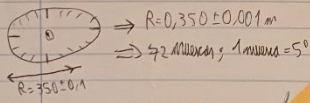 ⇒ R=0,350 ± 0,001 m
⇒ 72 muescas; 1 muesca = 5°
R = 350 ± 0,1